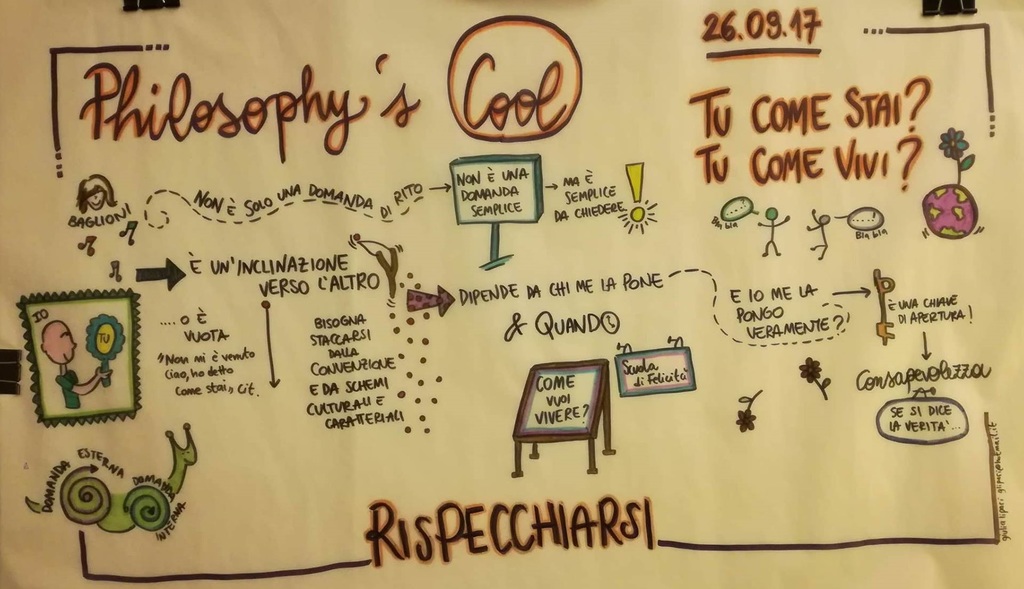 Philosophy's Cool
26.09.17
TU COME STAI?
TU COME VIVI?
BAGLIONI
NON È SOLO UNA DOMANDA DI RITO
NON È UNA
DOMANDA
SEMPLICE
MA È
SEMPLICE
DA CHIEDERE
Bla bla
Bla bla
È UN'INCLINAZIONE
VERSO L'ALTRO
.... O È
VUOTA
"Non mi è venuto
ciao, ho detto
come stai", cit.
BISOGNA
STACCARSI
DALLA
CONVENZIONE
E DA SCHEMI
CULTURALI E
CARATTERIALI
DIPENDE DA CHI ME LA PONE
& QUANDO
E IO ME LA
PONGO
VERAMENTE?
È UNA CHIAVE
DI APERTURA!
Consapevolezza
SE SI DICE
LA VERITÀ...
COME
VUOI
VIVERE?
Scuola
di Felicità
IO
TU
DOMANDA
ESTERNA
DOMANDA
INTERNA
RISPECCHIARSI
giulia lipari